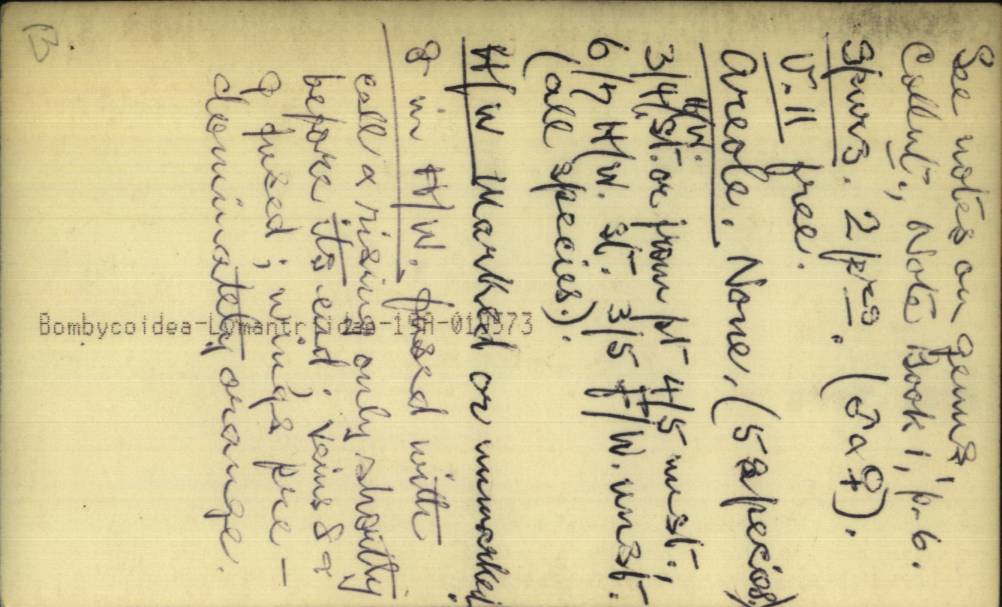 See notes on genus,
Collent., Note Book 1, p. 6.
Spurs. 2 prs. (♂ & ♀).
V. 11 free.
Areole. None, (5 species)
H/W. 3/4 st. or from pt 4/5 unst.,
6/7 H/W. st. 3/5 F/W. unst.
(all species).
H/W Marked or unmarked.
8 in H/W. fused with
cell & rising only shortly
before its end; veins 8 &
9 fused; wings pre-
dominately orange.
B
Bombycoidea-Lymantriidae-19A-010573